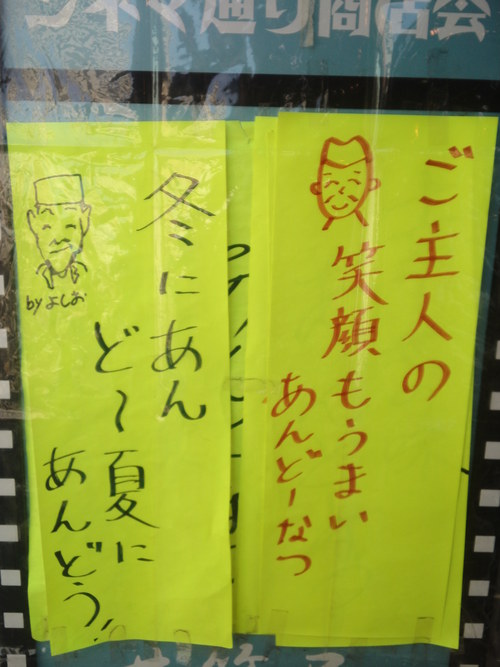 シネマ通り商店会
ご主人の
笑顔もうまい
あんどーなつ
冬にあん
ど〜夏に
あんどう!
byよしお